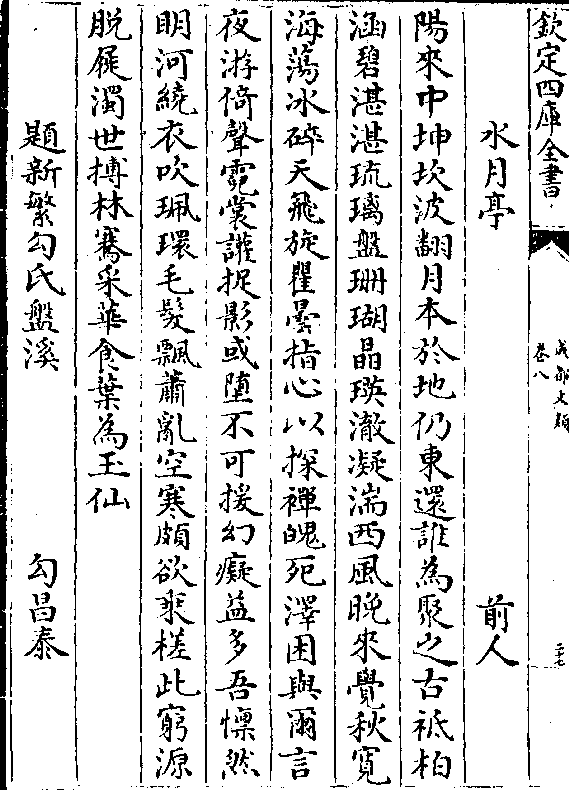 欽定四庫全書
成都文類
卷八
二十七
水月亭
前人
陽來中坤坎波翻月本於地仍東還誰為聚之古祗柏
涵碧湛湛琉璃盤珊瑚晶瑛澈凝湍西風晚來覺秋寛
海蕩冰碎天飛旋瞿曇指心以探禪魄死澤困與爾言
夜游倚聲霓裳讙捉影或堕不可援幻癡益多吾懔然
明河繞衣吹珮環毛髮飄蕭亂空寒頗欲乘槎此窮源
脱屣濁世摶林騫采華食葉為玉仙
題新繁勾氏盤溪
勾昌泰